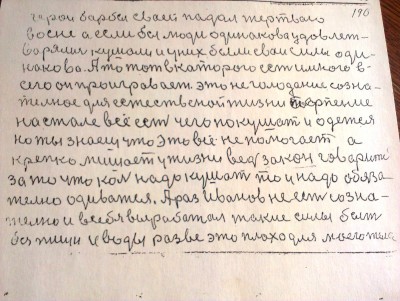 190
герои барвы своей падал жертваго
восне а если вся люди одинакова удовлет-
варялись кушали и у них были сваи силы оди-
накова. А то тот в каторого есть многого в-
сего он проигравает. это не голодание созна-
телное для естественой жизни терпение
на стале всё ест чего покушат и одется
но ты знаеш что это всё не помогает а
крепко мишает у жизни вед закон говарить
за то что кол надо кушат то и надо обяза-
телно одиватся. А раз Иванов не ест созна-
телно и в себя выработал такие силы быт
без пищи и воды разве это плохо для моего тела